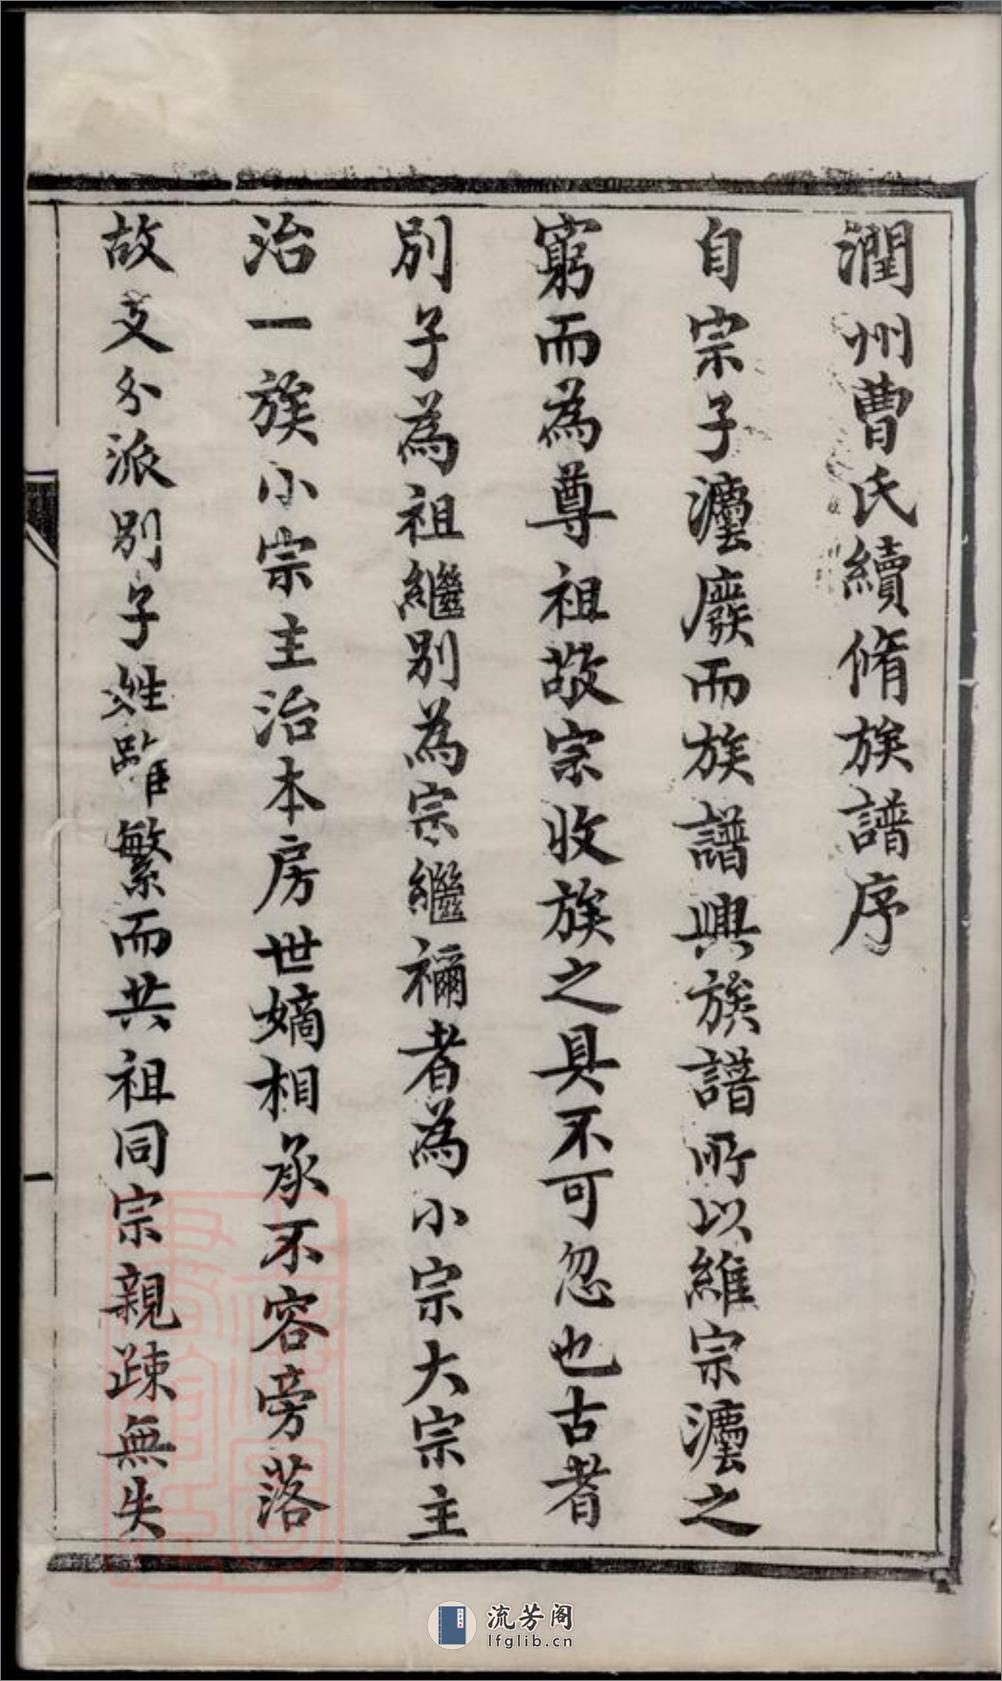 潤州曹氏續脩族譜序
自宗子灋廢而族譜興族譜所以維宗灋之
窮而為尊祖敬宗收族之具不可忽也古者
別子為祖繼別為宗繼禰者為小宗大宗主
治一族小宗主治本房世嫡相承不容旁落
故支分派別子姓雖繁而共祖同宗親疎無失
一
流芳阁
lfglib.cn